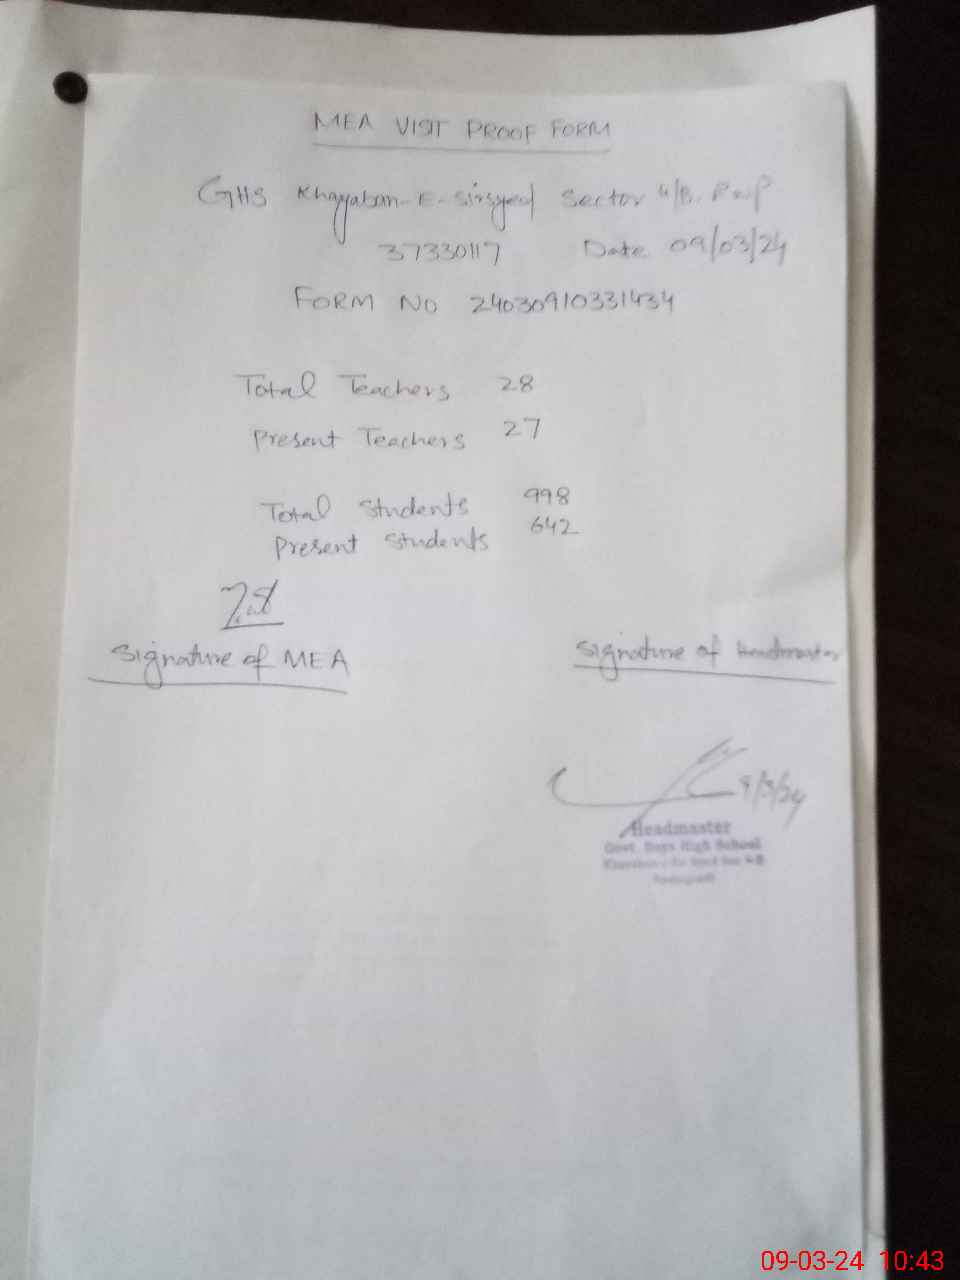 MEA VISIT PROOF FORM
GHS Khayaban-E-Sirsyed Sector 4/B. Rwp
37330117 Date 09/03/24
FORM NO 24030910331434
Total Teachers 28
Present Teachers 27
Total Students 998
Present Students 642
Signature of MEA
Signature of Headmaster
9/3/24
Headmaster
Govt. Boys High School
09-03-24 10:43